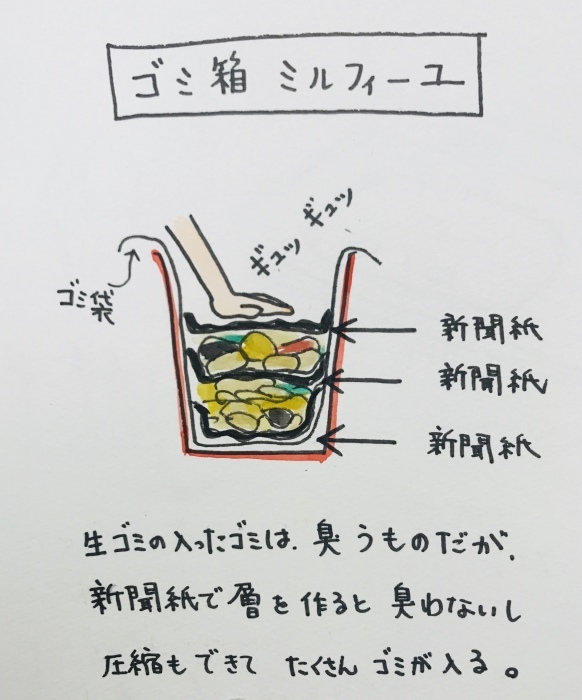 ゴミ箱 ミルフィーユ
ギュッ
ギュッ
ゴミ袋
新聞紙
新聞紙
新聞紙
生ゴミの入ったゴミは、臭うものだが、
新聞紙で層を作ると臭わないし
圧縮もできて たくさん ゴミが入る。